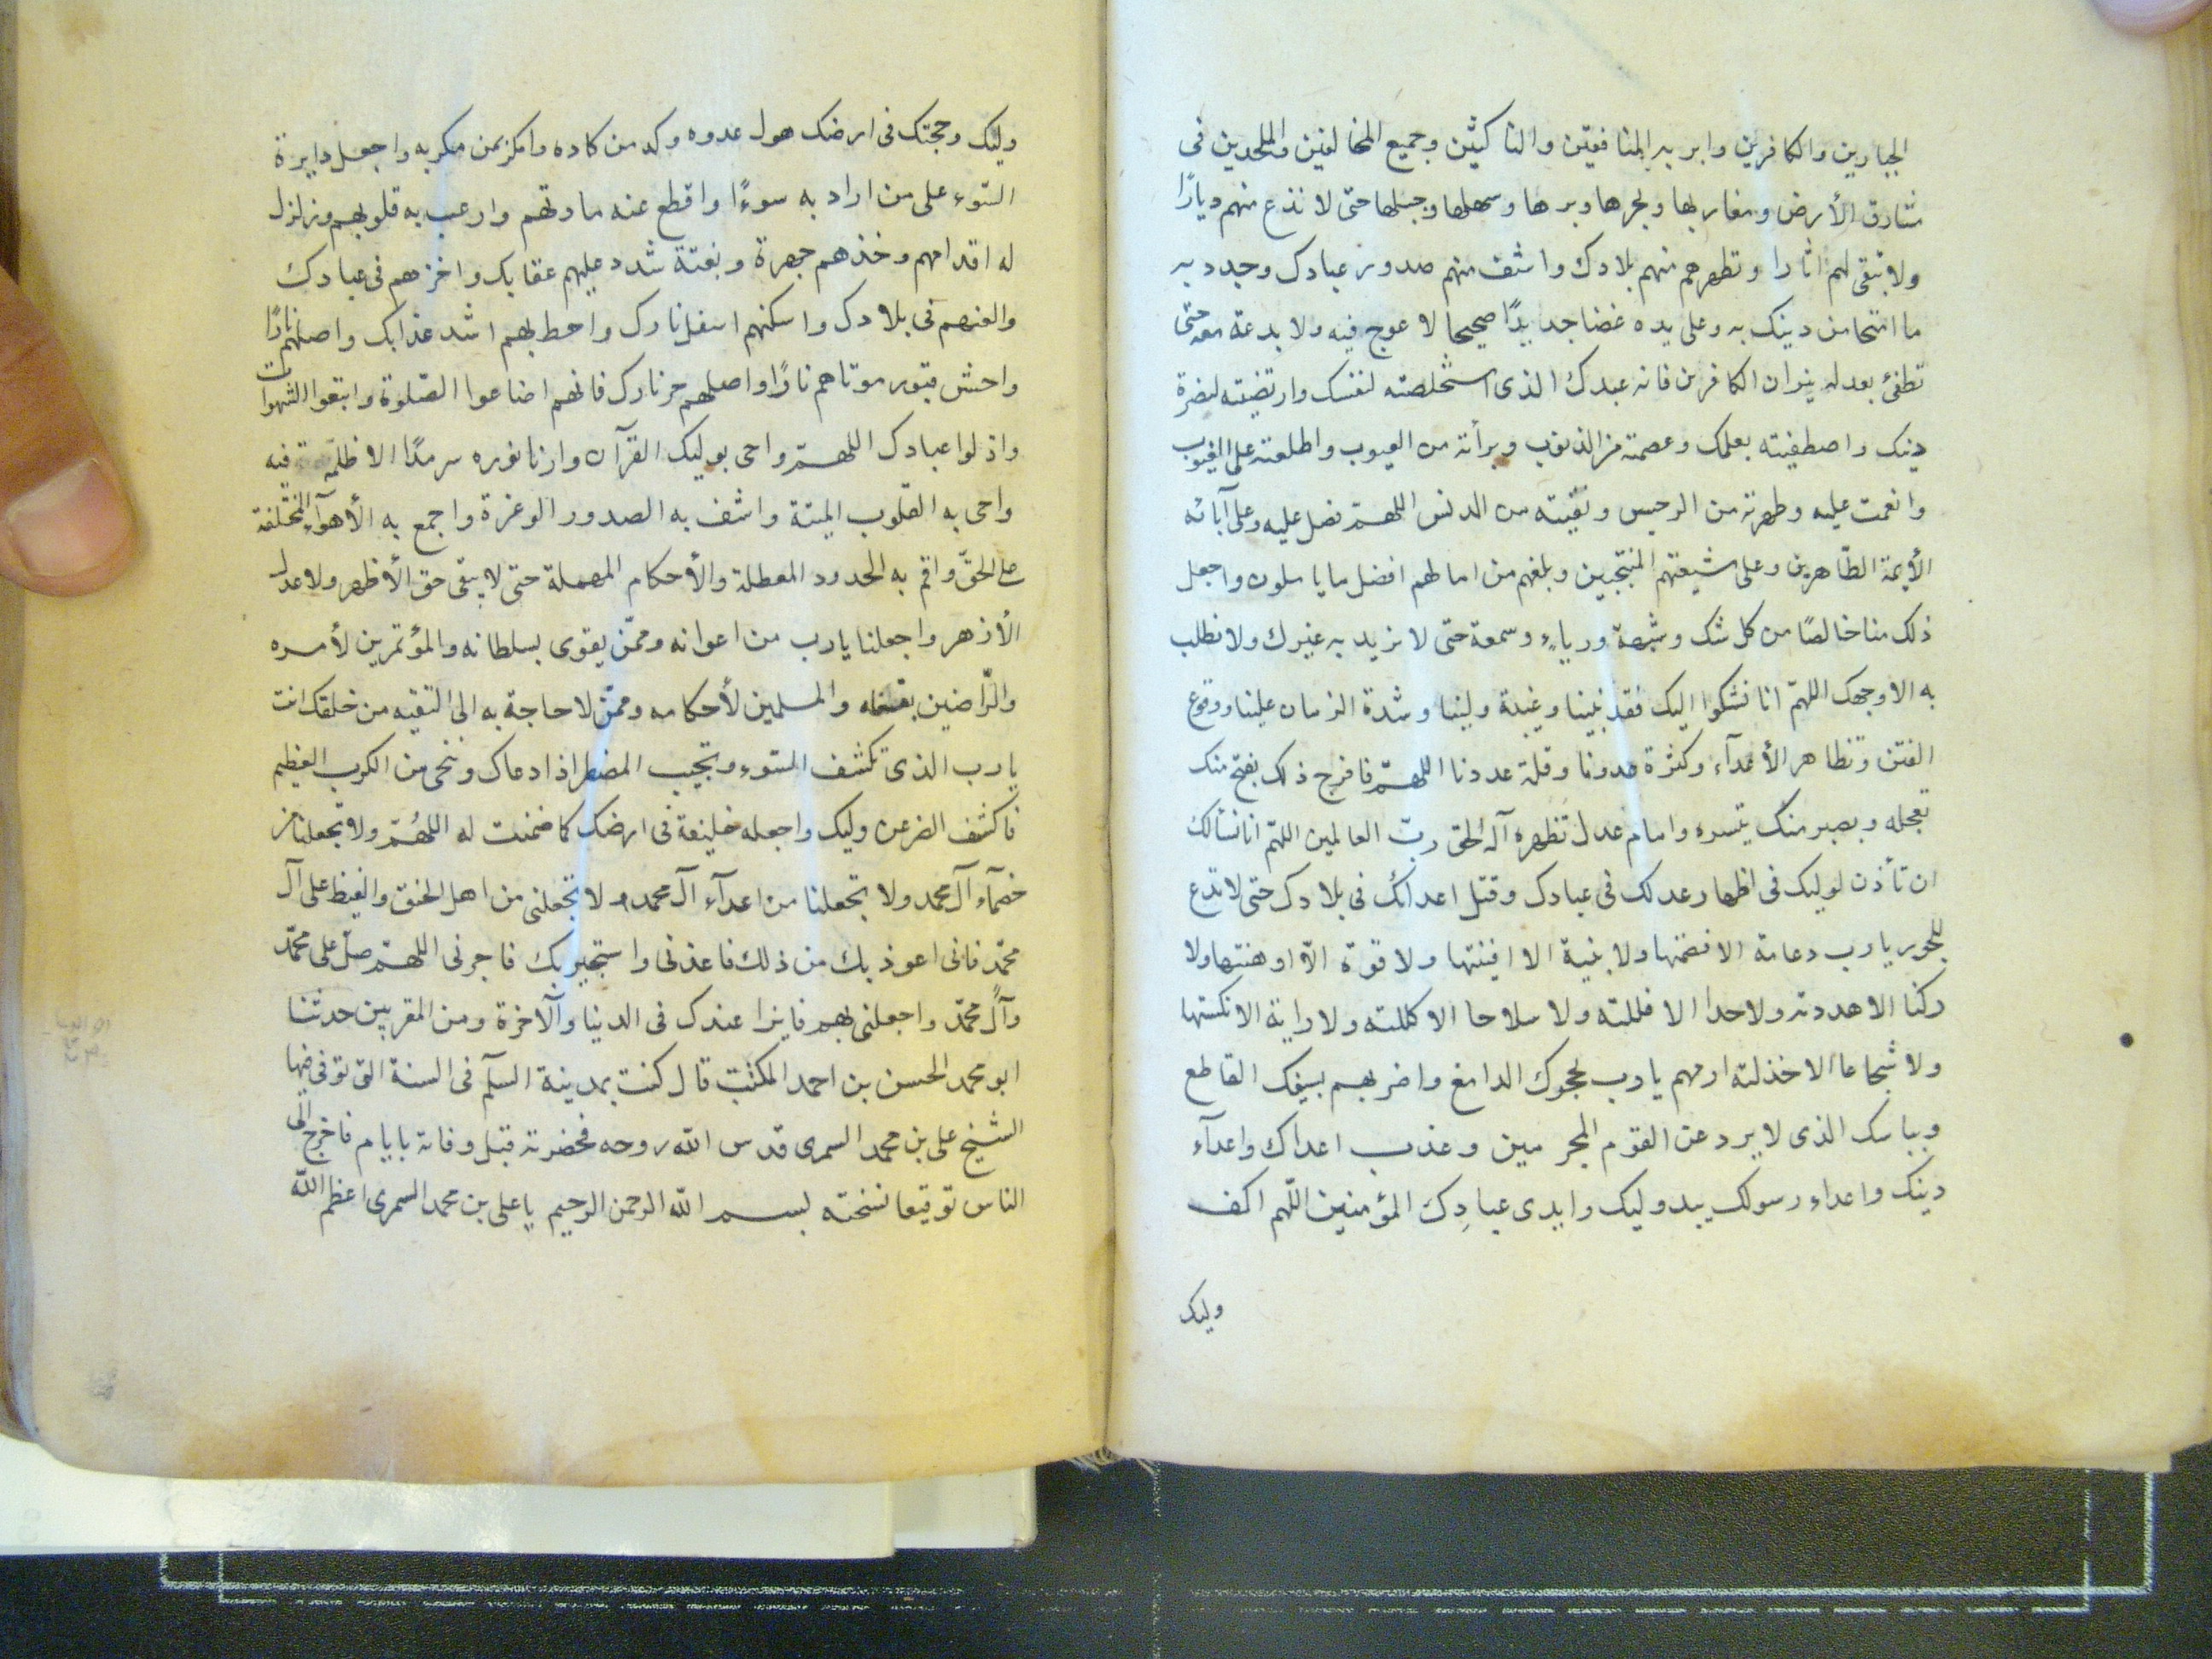 الجبارين والكافرين وابر به المنافقين والناكثين وجميع المخالفين والملحدين فى
مشارق الأرض ومغاربها وبحرها وبرها وسهلها وجبلها حتى لا تذع منهم ديارًا
ولا تبقى لهم اثارا وتطهرهم منهم بلادك واشف منهم صدور عبادك وجدد به
ما امتحا من دينك به وعلى يده غضا جديدًا صحيحا لا عوج فيه ولا بدعة معه حتى
تطفئ بعدله نيران الكافرين فانه عبدك الذى استخلصته لنفسك وارتضيته لنصرة
دينك واصطفيته بعلمك وعصمته من الذنوب وبرأته من العيوب واطلعته على الغيوب
وانعمت عليه وطهرته من الرجس ونقيته من الدنس اللهمّ فصل عليه وعلى آبائه
الأيمة الطّاهرين وعلى شيعتهم المنتجبين وبلغهم من امالهم افضل ما ياملون واجعل
ذلك منا خالصًا من كل شك وشبهة ورياءٍ وسمعة حتى لا نريد به غيرك ولا نطلب
به الا وجهك اللهمّ انا نشكوا اليك فقد نبينا وغيبة ولينا وشدة الزمان علينا ووقوع
الفتن وتظاهر الأعدآء وكثرة عدونا وقلة عددنا اللهمّ فافرج ذلك بفتح منك
تعجله وبصبر منك تيسره وامام عدل تظهره آله الحق ربّ العالمين اللهمّ انا نسالك
ان تأذن لوليك فى اظهار عدلك فى عبادك وقتل اعدائك فى بلادك حتى لا تدع
للجور يارب دعامة الا قصمتها ولا بنية الا افنيتها ولا قوة الّا اوهنتها ولا
ركنا الا هددته ولا حدا الا فللته ولا سلاحا الا كللته ولا راية الا نكستها
ولا شجاعا الا خذلته ارمهم يارب بحجرك الدامغ واضربهم بسيفك القاطع
وبباسك الذى لا يرد عن القوم المجرمين وعذب اعداك واعدآء
دينك واعداء رسولك بيد وليك وايدى عبادِك المؤمنين اللّهم اكف
وليك
وليك وحجتك فى ارضك هول عدوه وكد من كاده وامكر بمن مكر به واجعل دايرة
السّوء على من اراد به سوءًا واقطع عنه مادتهم وارعب به قلوبهم وزلزل
له اقدامهم وخذهم جهرة وبغتة شدد عليهم عقابك واخزهم فى عبادك
والعنهم فى بلادك واسكنهم اسفل نارك واحط بهم اشد عذابك واصلهم نارًا
واحش قبور موتاهم نارًا واصلهم حر نارك فانهم اضاعوا الصّلوة واتبعوا الشهوات
واذلوا عبادك اللهمّ واحى بوليك القرآن وارنا نوره سرمدًا لا ظلمة فيه
واحى به القلوب الميتة واشف به الصدور الوغرة واجمع به الأهوآء المختلفة
على الحقّ واقم به الحدود المعطلة والأحكام المهملة حتى لا يبقى حق الأظهر ولا عدل
الأزهر واجعلنا يارب من اعوانه وممّن يقوى بسلطانه والمؤتمرين لأمره
والرّاضين بفعله والمسلمين لأحكامه وممّن لا حاجة به الى التقيه من خلقك انت
يارب الذى تكشف السّوء وتجيب المضطر اذا دعاك وتنجى من الكرب العظيم
فاكشف الضر عن وليك واجعله خليفة فى ارضك كما ضمنت له اللهُمّ ولا تجعلنا من
خصمآء آل محمد ولا تجعلنا من اعدآء آل محمد ولا تجعلنى من اهل الحنق والغيظ على آل
محمّد فانى اعوذ بك من ذلك فاعذنى واستجير بك فاجرنى اللهمّ صلّ على محمّد
وآل محمّد واجعلنى بهم فايزا عندك فى الدنيا والآخرة ومن المقربين حدثنا
ابو محمد الحسن بن احمد المكتب قال كنت بمدينة السلم فى السنة التى توفى فيها
الشيخ على بن محمد السمرى قدس الله روحه فحضرته قبل وفاته بايام فاخرج الى
الناس توقيعا نسخته بسم الله الرحمن الرحيم يا على بن محمد السمرى اعظم الله